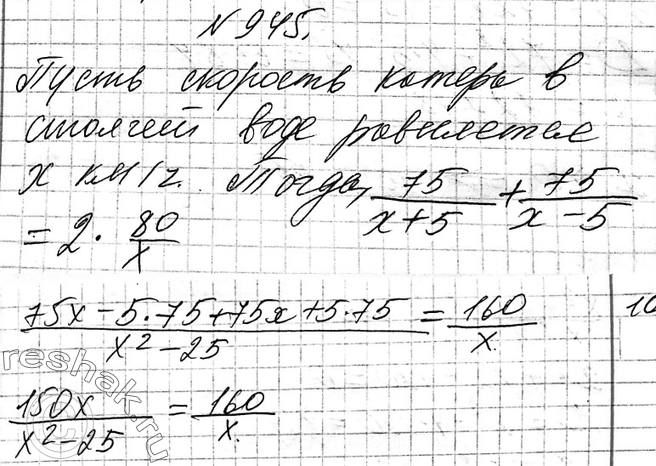 № 945.
Пусть скорость катера в
стоячей воде равняется
x км/ч. Тогда, 75/(x+5) + 75/(x-5)
= 2 · 80/x
(75x - 5·75 + 75x + 5·75)/(x² - 25) = 160/x.
150x/(x² - 25) = 160/x.
reshak.ru